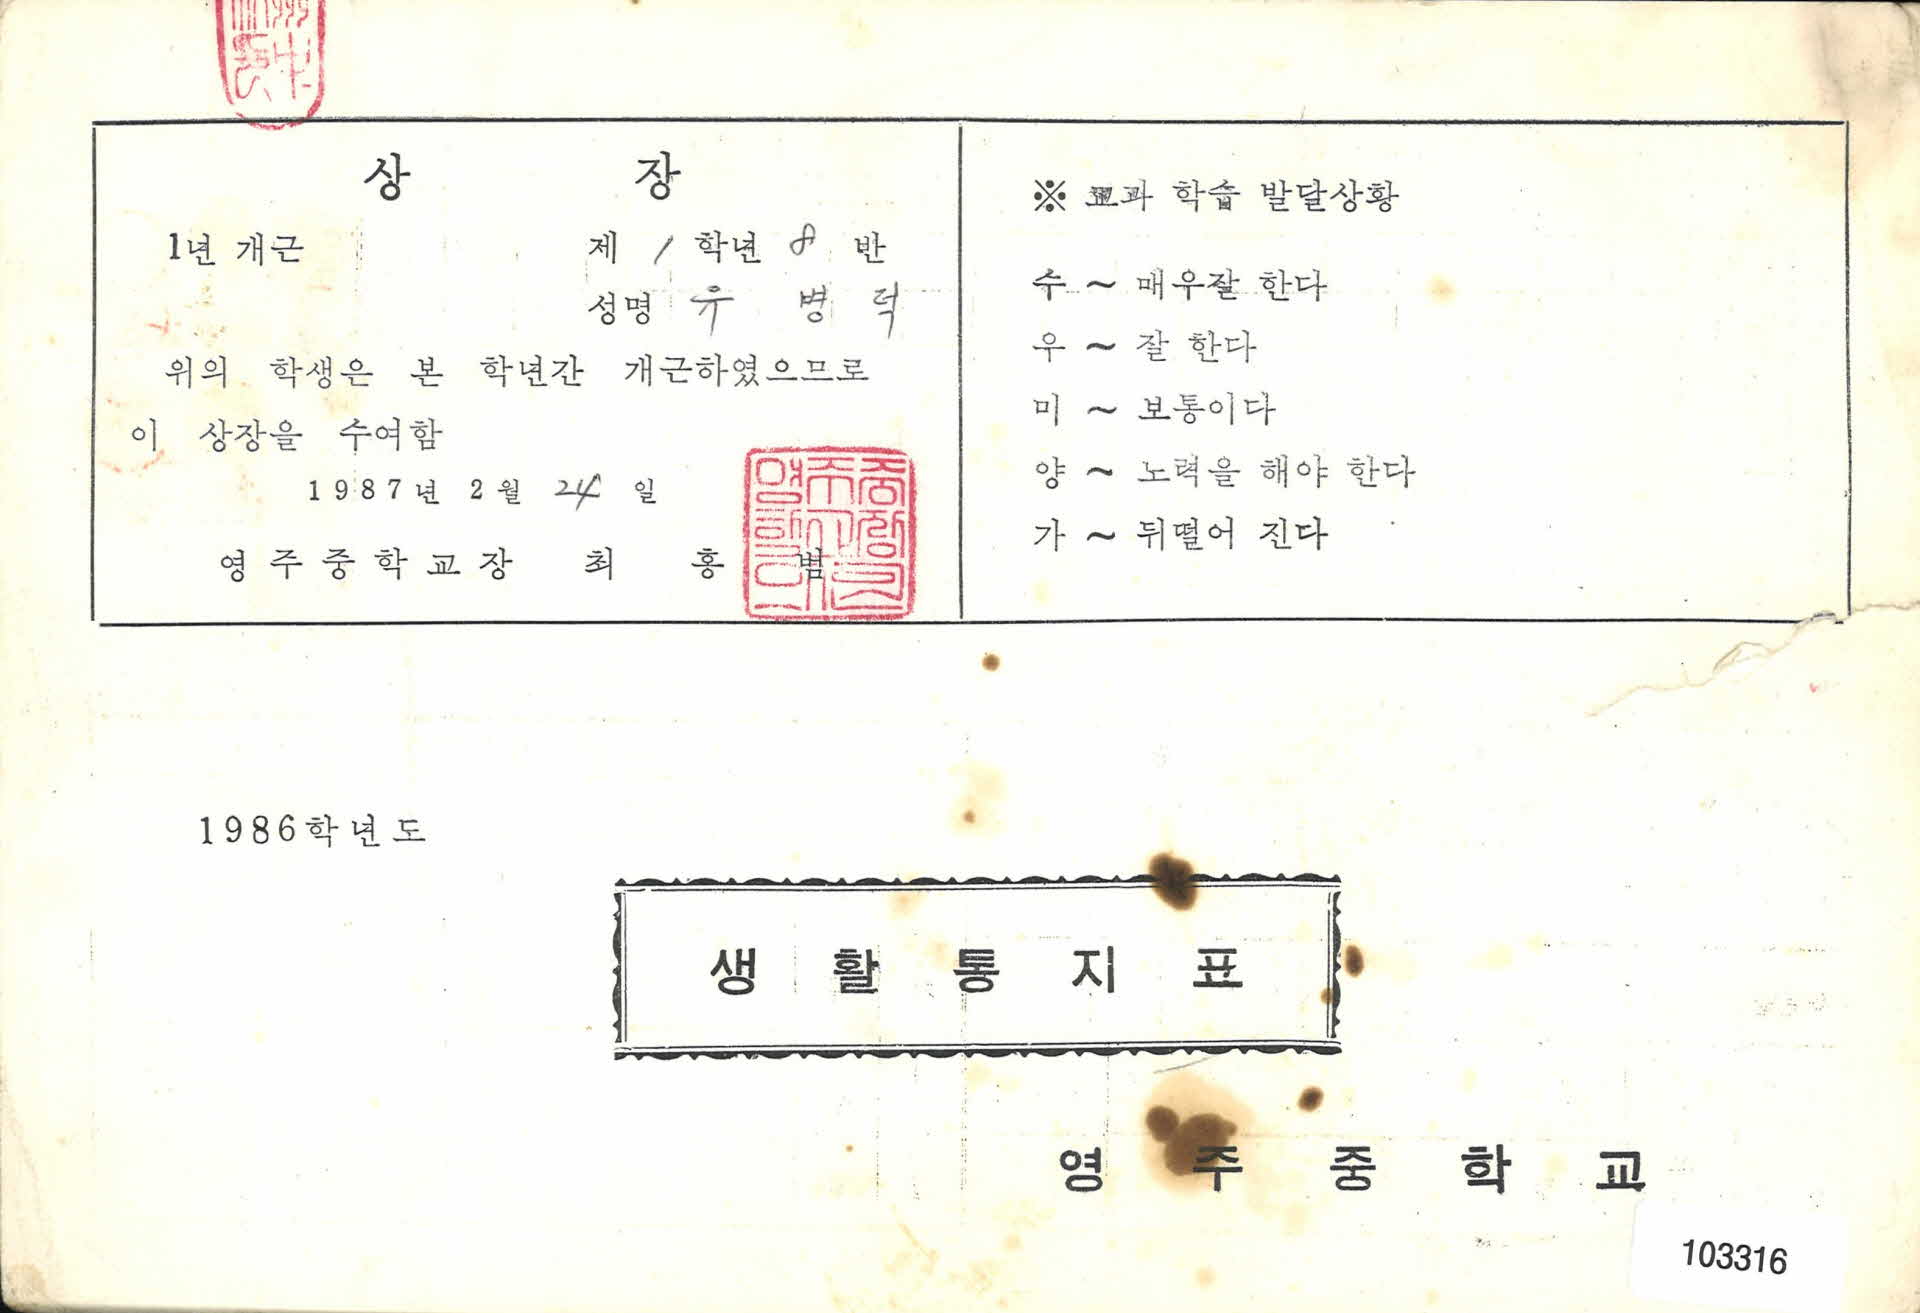 상 장
1년 개근 제 1 학년 8 반
성명 유 병 덕
위의 학생은 본 학년간 개근하였으므로
이 상장을 수여함
1987년 2월 24 일
영주중학교장 최 홍 범
※ 교과 학습 발달상황
수 ~ 매우잘 한다
우 ~ 잘 한다
미 ~ 보통이다
양 ~ 노력을 해야 한다
가 ~ 뒤떨어 진다
1986학년도
생 활 통 지 표
영 주 중 학 교
103316